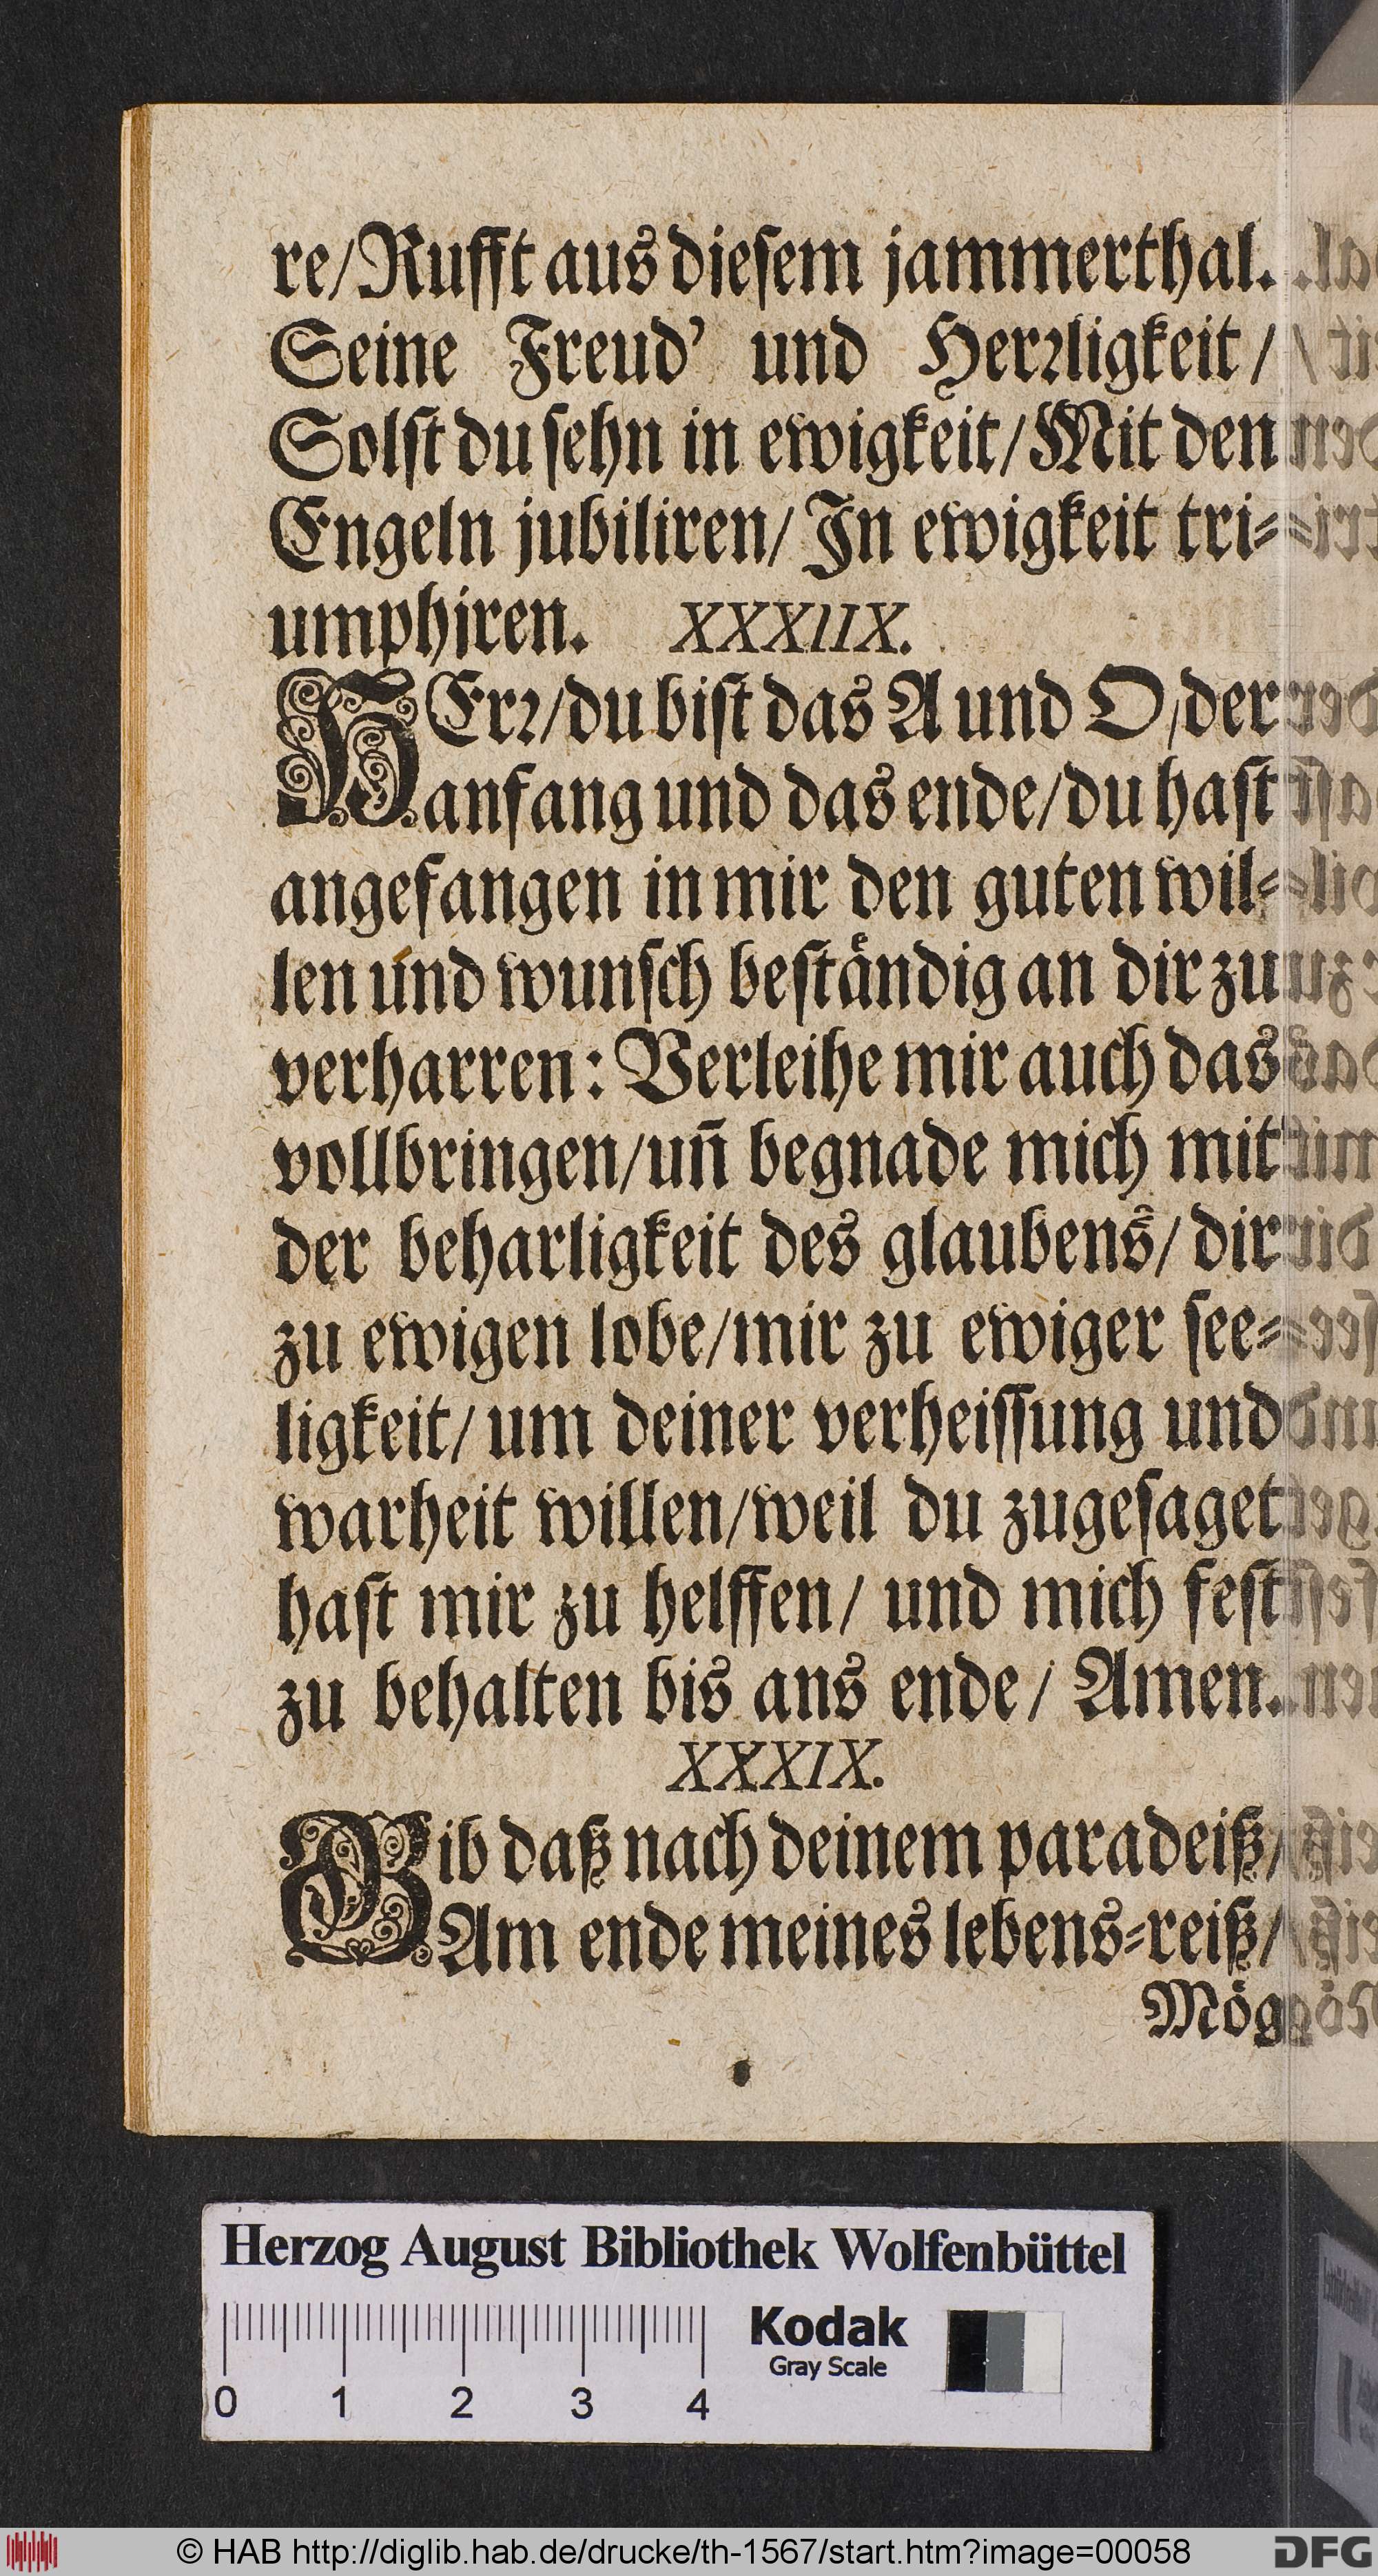 re/Rufft aus diesem jammerthal.
Seine Freud’ und Herꝛligkeit/
Solst du sehn in ewigkeit/Mit den
Engeln jubiliren/ In ewigkeit tri⸗
umphiren. XXXIIX.
HErꝛ/du bist das A und O, der
anfang und das ende/du hast
angefangen in mir den guten wil⸗
len und wunsch bestaͤndig an dir zu
verharren: Verleihe mir auch das
vollbringen/uñ begnade mich mit
der beharligkeit des glaubens/ dir
zu ewigen lobe/mir zu ewiger see⸗
ligkeit/ um deiner verheissung und
warheit willen/weil du zugesaget
hast mir zu helffen/ und mich fest
zu behalten bis ans ende/ Amen.
XXXIX.
Gib daß nach deinem paradeiß/
Am ende meines lebens⸗reiß/
Moͤg
Herzog August Bibliothek Wolfenbüttel
Kodak
Gray Scale
0 1 2 3 4
© HAB http://diglib.hab.de/drucke/th-1567/start.htm?image=00058
DFG